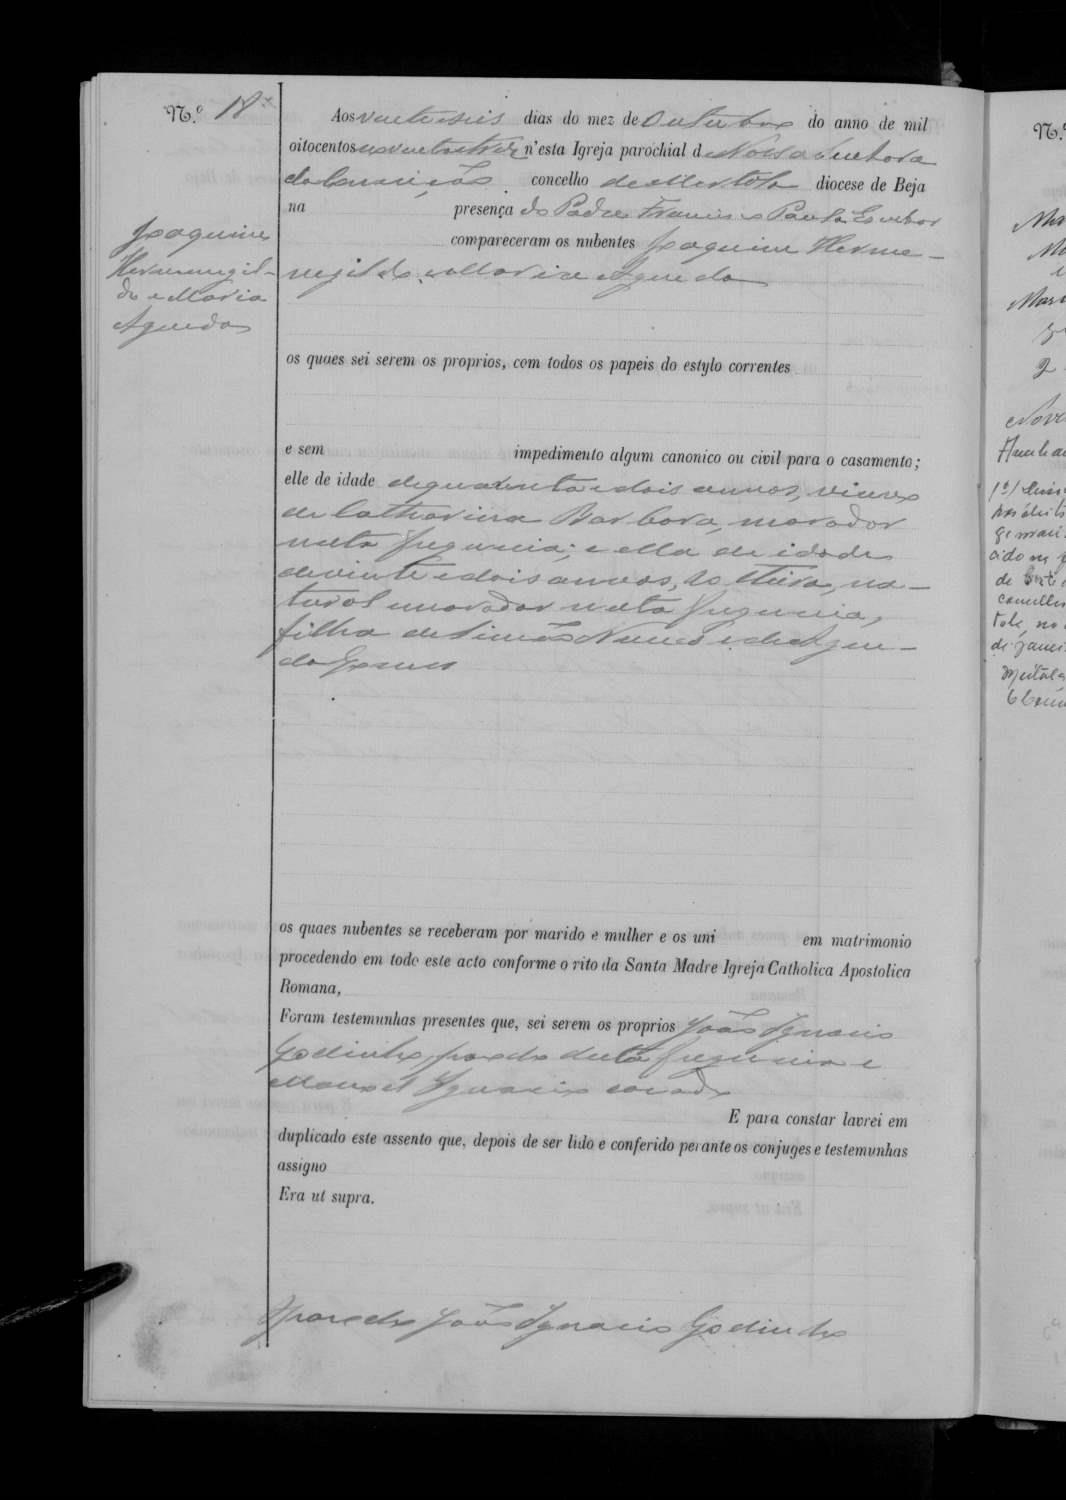 N.º 18
Aos vinte e seis dias do mez de Outubro do anno de mil
oitocentos e noventa e trez n'esta Igreja parochial de Nossa Senhora
da Conceição concelho de Mertola diocese de Beja
na presença do Padre Francisco Paula
compareceram os nubentes Joaquim Herme-
negildo e Maria Agueda
Joaquim
Hermenegil-
do e Maria
Agueda
os quaes sei serem os proprios, com todos os papeis do estylo correntes
e sem impedimento algum canonico ou civil para o casamento;
elle de idade de quarenta e dois annos, viuvo
de Catharina Barbora, morador
nesta freguesia; e ella de idade
de vinte e dois annos, solteira, na-
tural e morador nesta freguesia,
filha de Simão Nunes e de Ague-
da Gomes
os quaes nubentes se receberam por marido e mulher e os uni em matrimonio
procedendo em todo este acto conforme o rito da Santa Madre Igreja Catholica Apostolica
Romana,
Foram testemunhas presentes que, sei serem os proprios João Ignacio
Godinho, parocho desta freguesia e
Manoel Ignacio casado
E para constar lavrei em
duplicado este assento que, depois de ser lido e conferido perante os conjuges e testemunhas
assigno
Era ut supra.
O parocho João Ignacio Godinho
N.º